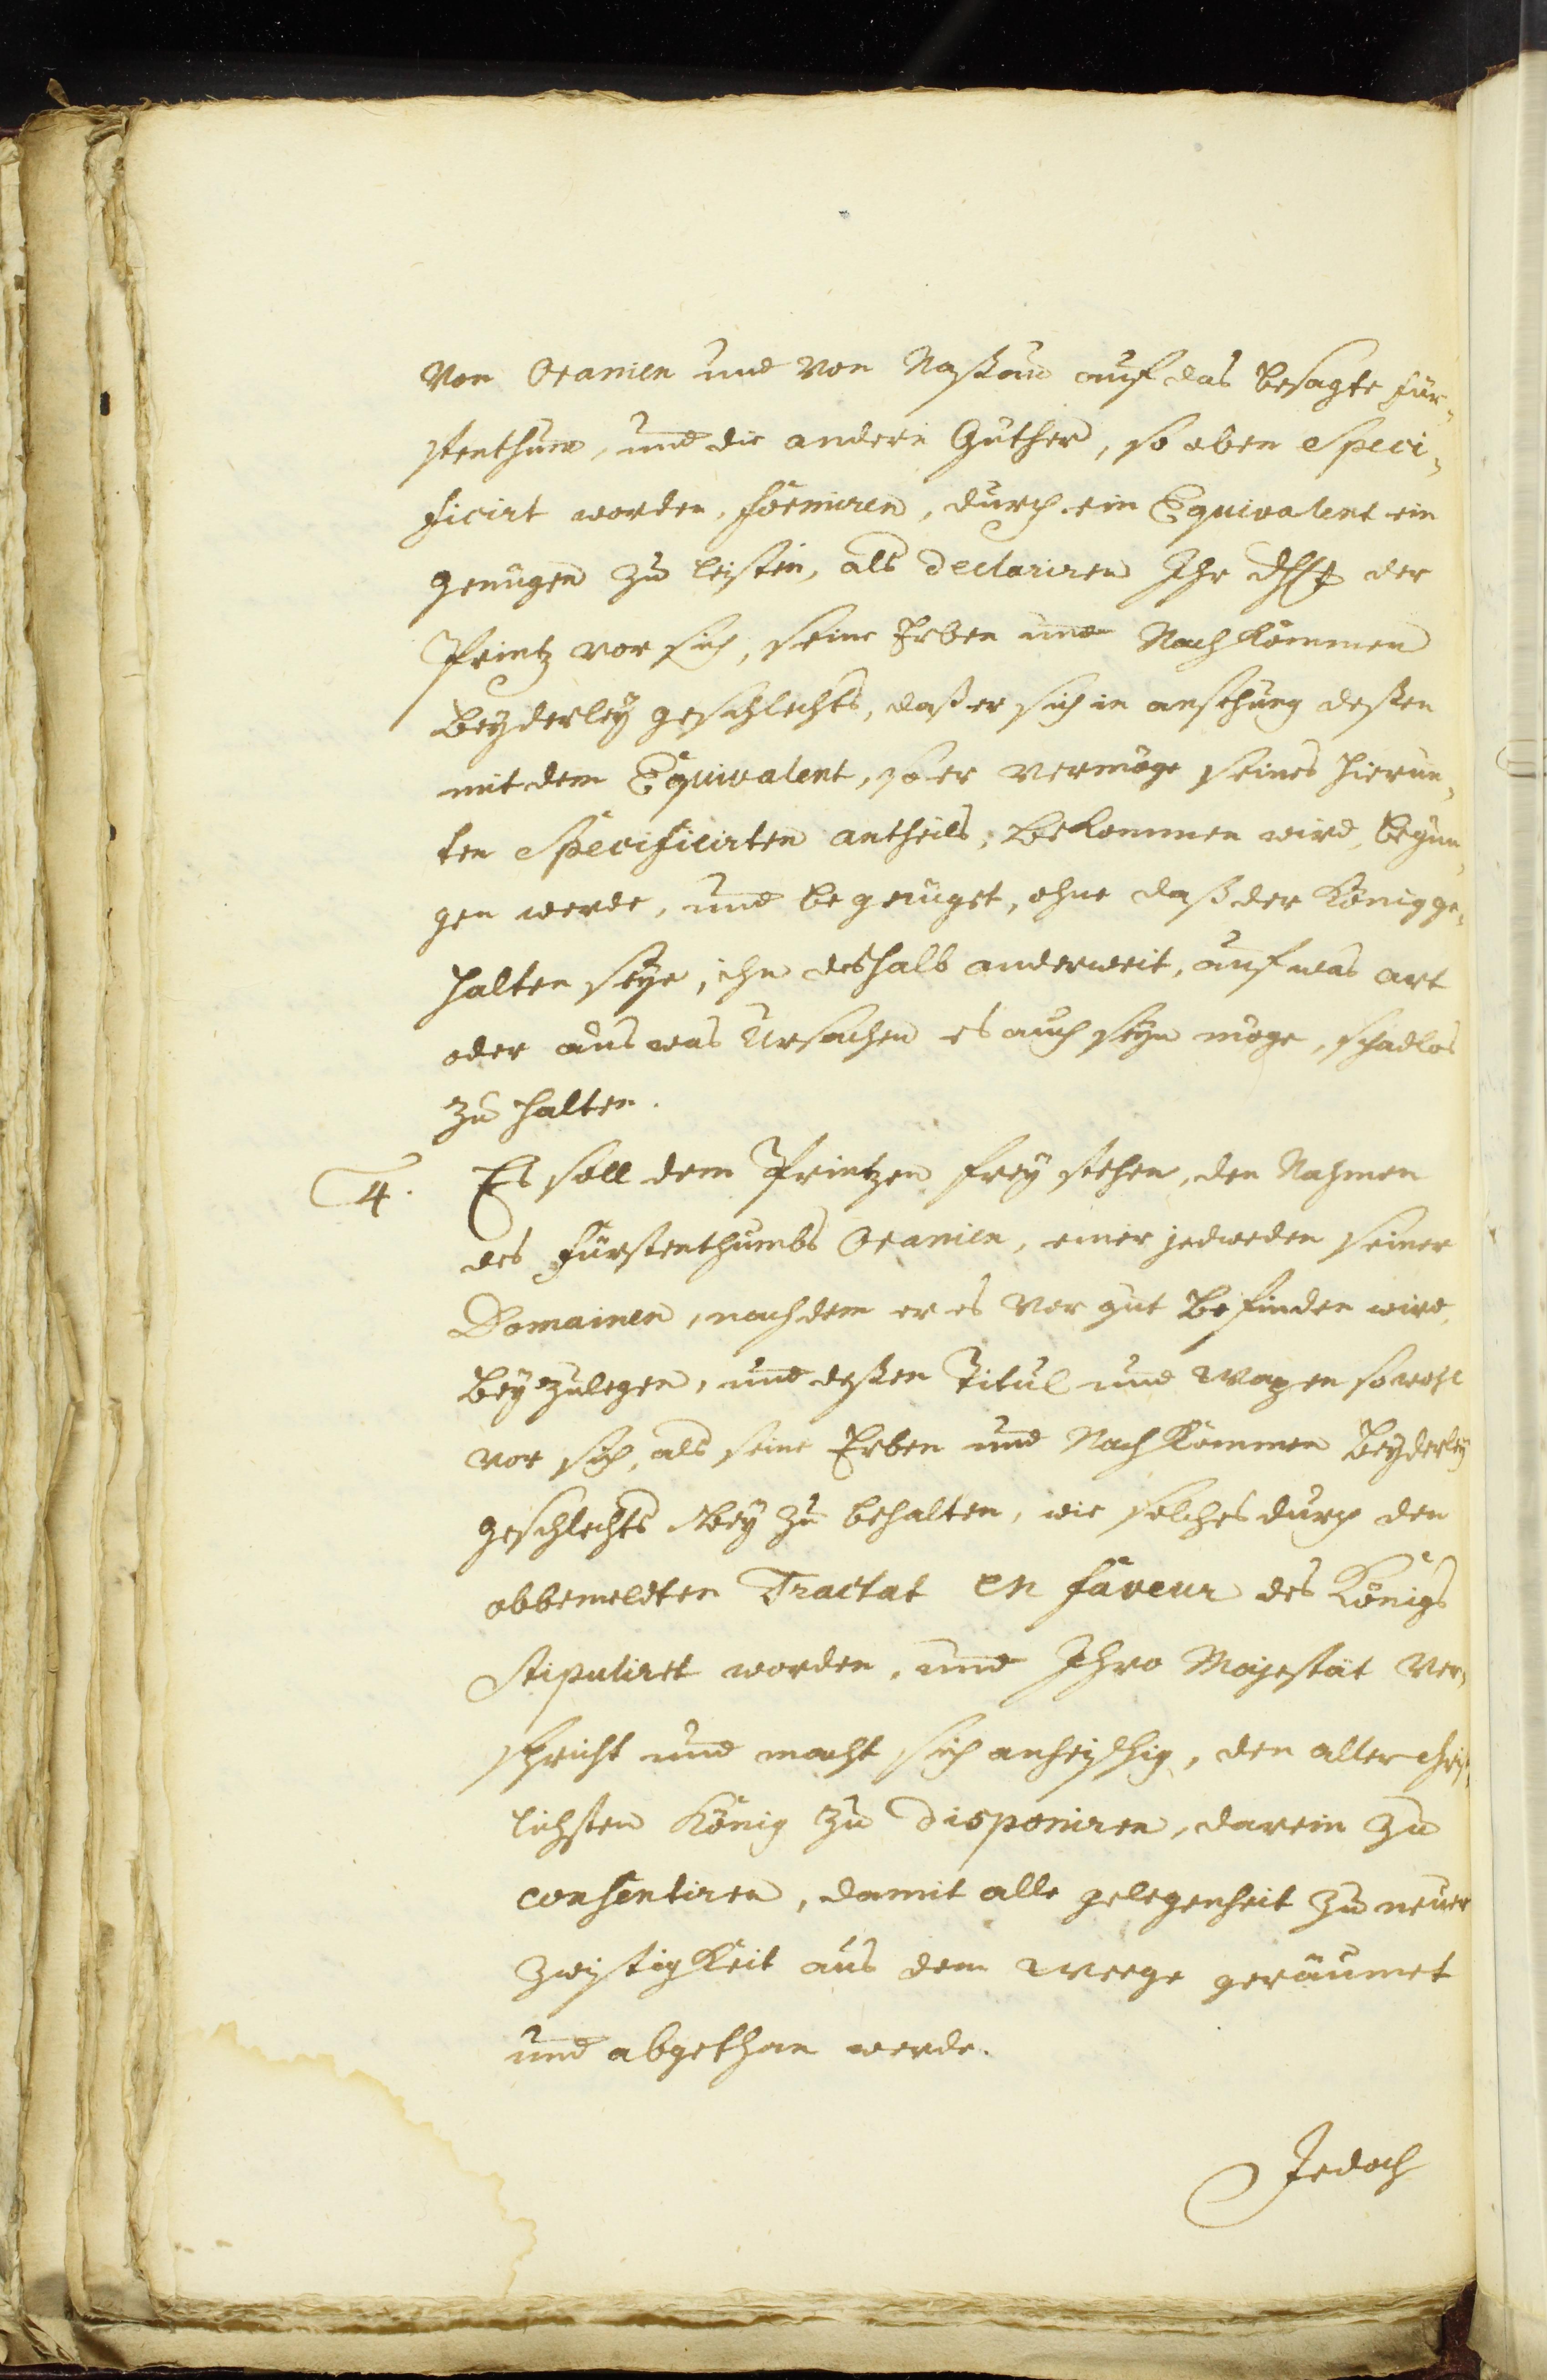 von Oranien und von Naßau auf das besagte Für-
stenthum, und die andern Güther, so oben Speci-
ficirt worden, formiren, durch ein Equivalent ein
genügen zu leisten, als declariren Ihr der
Printz vor sich, seine Erben und Nachkommen
beyderley geschlechts, daß er sich in ansehung deßen
mit dem Equivalent, so er vermöge seines hierun-
ten Specificirten antheils, bekommen wird, begnü-
gen werde, und begnüget, ohne daß der König ge-
halten seye, ihn deshalb anderweit, auf was art
oder aus was Ursachen es auch seyn möge, schadlos
zu halten.
4. Es soll dem Printzen frey stehen, den Nahmen
des Fürstenthumbs Oranien, einer jedweden seiner
Domainen, nachdem er es vor gut befinden wird,
beyzulegen, und deßen Titul und Wapen sowohl
vor sich, als seine Erben und Nachkommen beyderley
geschlechts bey zu behalten, wie solches durch den
obbemeldten Tractat en faveur des Königs
Stipuliret worden, und Ihro Majestät ver-
spricht und macht sich anheischig, den allerchrist-
lichsten König zu disponiren, darein zu
consentiren, damit alle gelegenheit zu neuer
zwistigkeit aus dem weege geräumet
und abgethan werde.
Jedoch